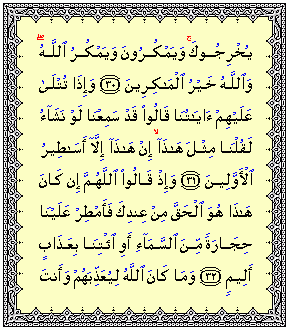 يُخْرِجُوكَ ۚ وَيَمْكُرُونَ وَيَمْكُرُ ٱللَّهُ ۖ
وَٱللَّهُ خَيْرُ ٱلْمَٰكِرِينَ ﴿٣٠﴾ وَإِذَا تُتْلَىٰ
عَلَيْهِمْ ءَايَٰتُنَا قَالُوا۟ قَدْ سَمِعْنَا لَوْ نَشَآءُ
لَقُلْنَا مِثْلَ هَٰذَآ ۙ إِنْ هَٰذَآ إِلَّآ أَسَٰطِيرُ
ٱلْأَوَّلِينَ ﴿٣١﴾ وَإِذْ قَالُوا۟ ٱللَّهُمَّ إِن كَانَ
هَٰذَا هُوَ ٱلْحَقَّ مِنْ عِندِكَ فَأَمْطِرْ عَلَيْنَا
حِجَارَةً مِّنَ ٱلسَّمَآءِ أَوِ ٱئْتِنَا بِعَذَابٍ
أَلِيمٍ ﴿٣٢﴾ وَمَا كَانَ ٱللَّهُ لِيُعَذِّبَهُمْ وَأَنتَ